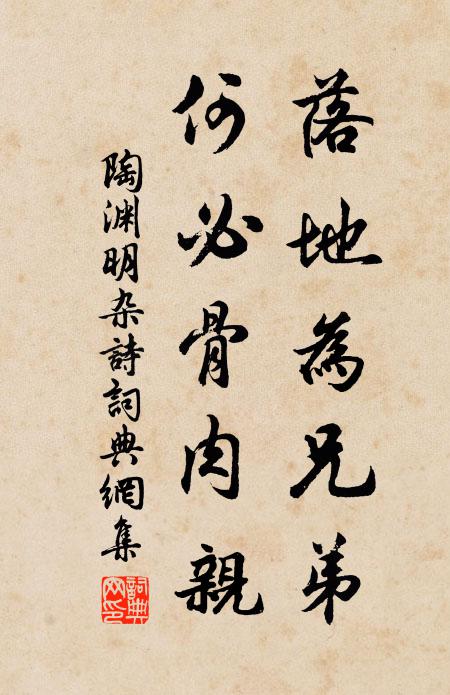 落地為兄弟
何必骨肉親
陶渊明杂詩詞典網集
詞典
网印